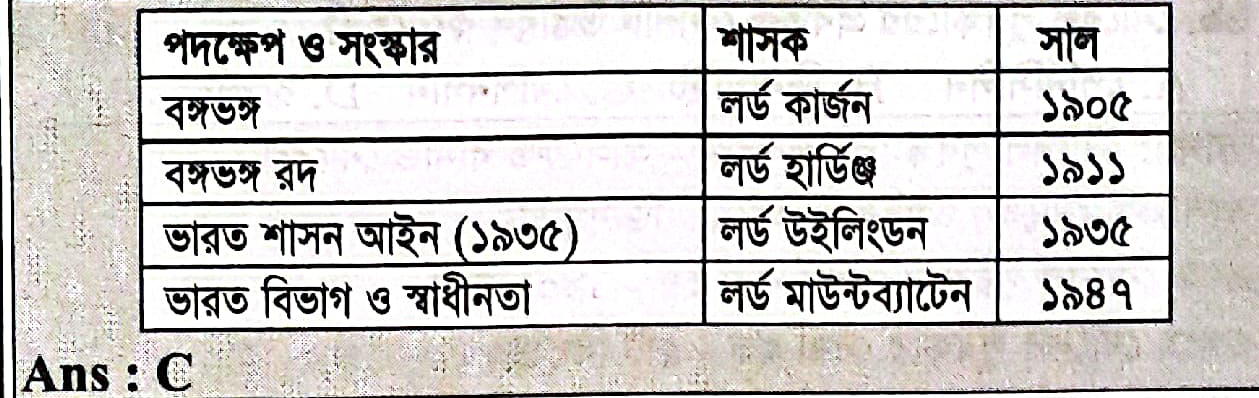 পদক্ষেপ ও সংস্কার শাসক সাল
বঙ্গভঙ্গ লর্ড কার্জন ১৯০৫
বঙ্গভঙ্গ রদ লর্ড হার্ডিঞ্জ ১৯১১
ভারত শাসন আইন (১৯৩৫) লর্ড উইলিংডন ১৯৩৫
ভারত বিভাগ ও স্বাধীনতা লর্ড মাউন্টব্যাটেন ১৯৪৭
Ans : C